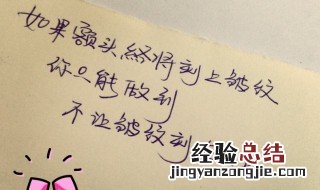 如果额头终将刻上皱纹
你只能做到
不让皱纹刻
经验总结
jingyanzongjie.com